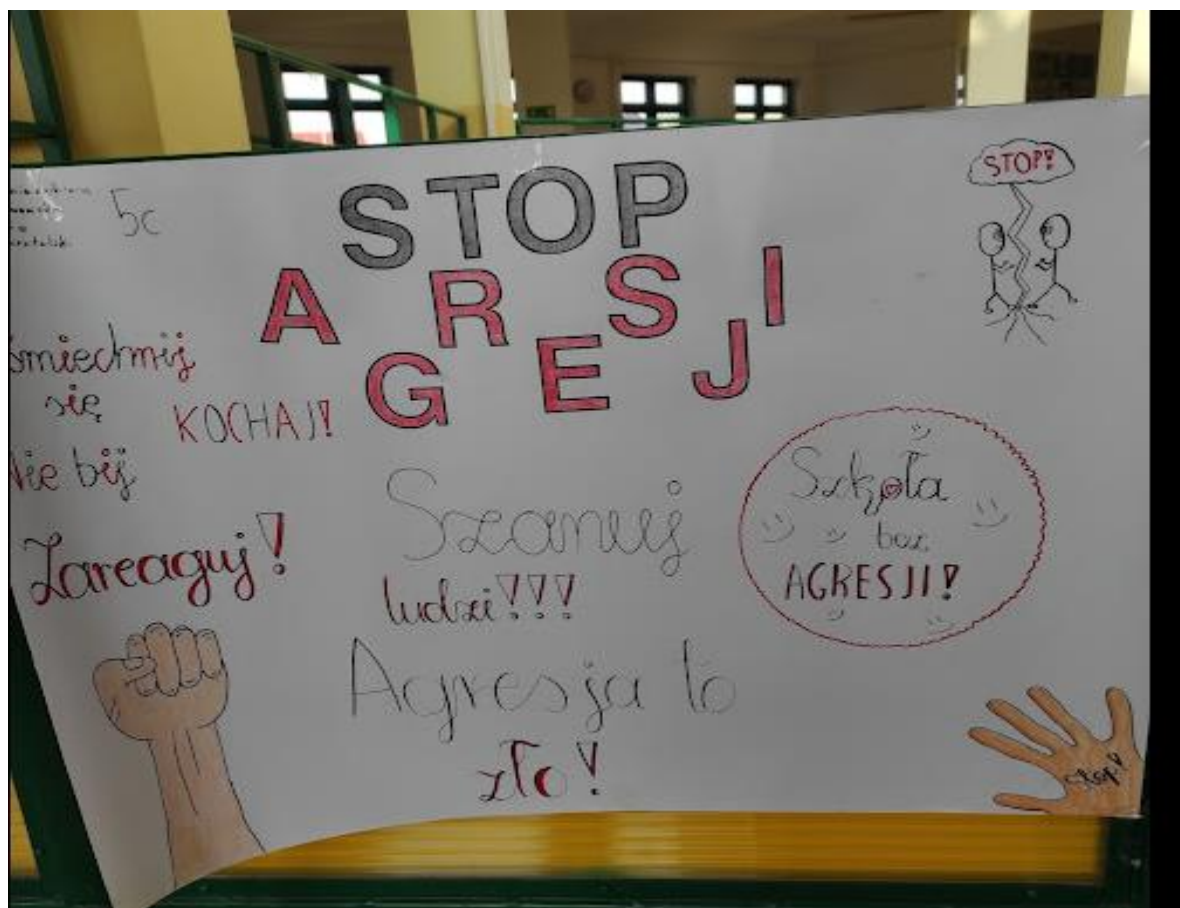 5c
STOP
AGRESJI
STOP!
śmiechnij
się
KOCHAJ!
Nie bij
Zareaguj!
Szanuj
ludzi!!!
Szkoła
bez
AGRESJI!
Agresja to
zło!
Stop!